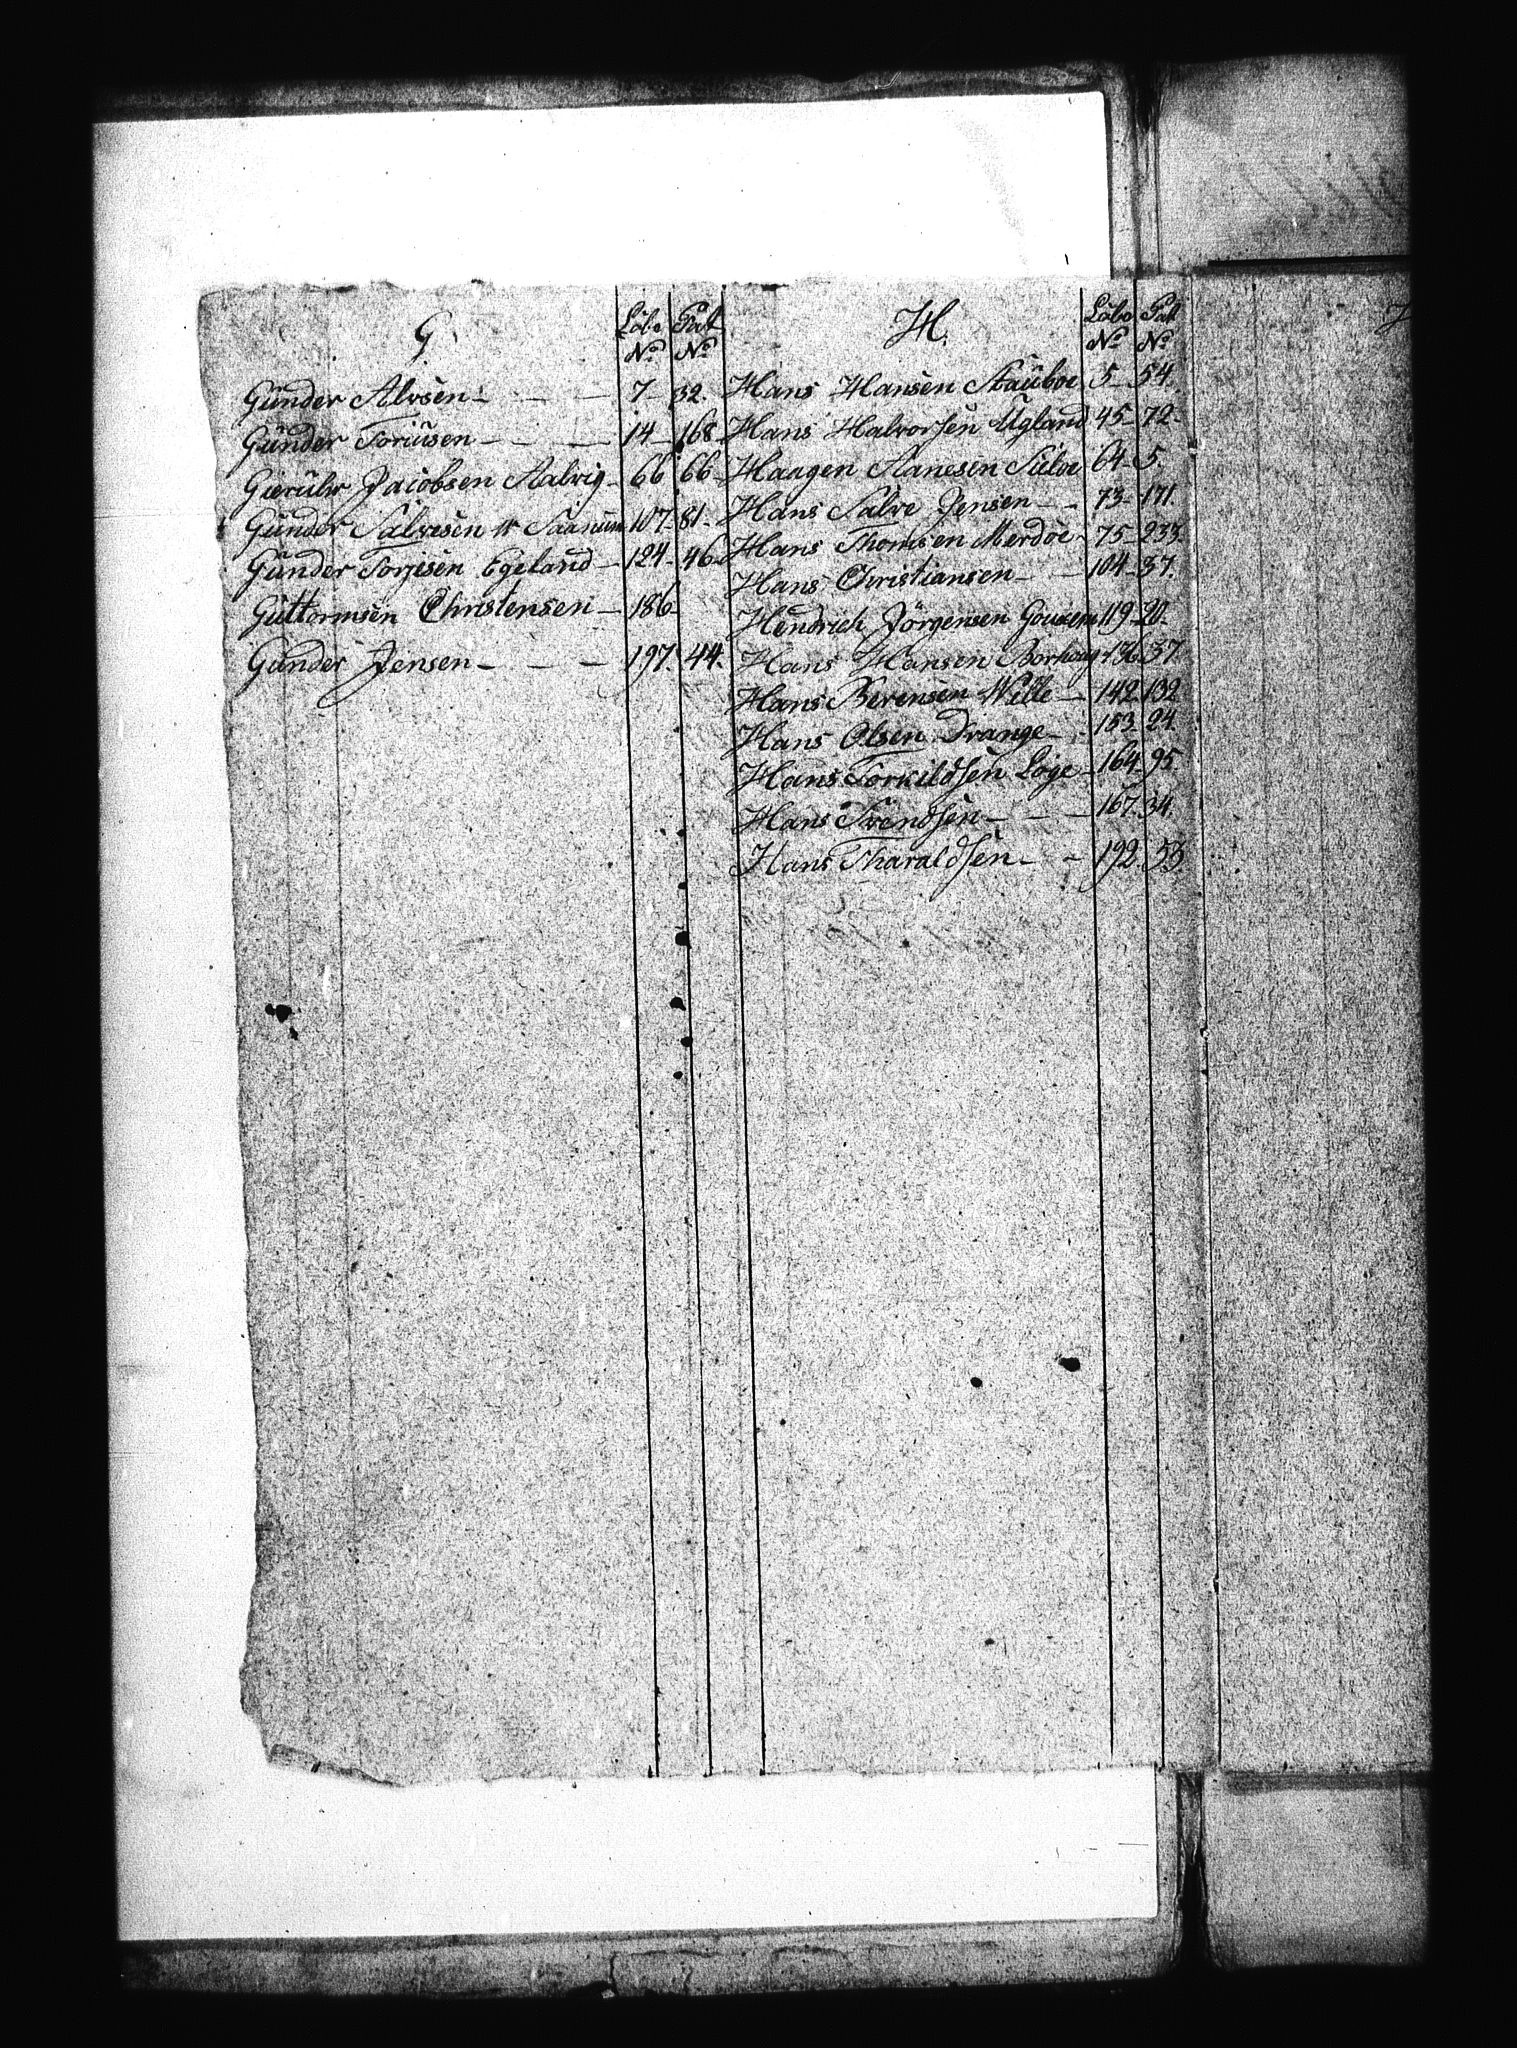 G.
Löbe Pat
No No
Günder Alvsen - - - 7 - 32.
Günder Toriusen - - - 14 - 168
Gierulv Jacobsen Aalvig - 66 66
Günder Salvesen 107 - 81 -
Günder Torjesen Egeland - 124 - 46
Guttormsen Christensen - 186 -
Günder Jensen - - - 197. 44.
H.
Löbe Pat
No No
Hans Hansen Stauboe 5 - 54.
Hans Halvorsen Ugland 45 - 72 -
Haagen Aanesen 64 - 5.
Hans Salve Jensen - - 73 - 171.
Hans Thomsen Merdöe - 75 - 233.
Hans Christiansen - - 104 - 37.
Hendrich Jörgensen 119 - 20 -
Hans Hansen Borhaug 136. 37.
Hans Berensen Wille - 142. 132
Hans Olsen Drange - 153. 24.
Hans Torkildsen Loge - 164. 95
Hans Svendsen - - - 167. 34.
Hans Tharaldsen - - 192. 53.